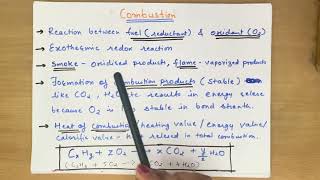 Combustion
→ Reaction between fuel (reductant) & oxidant (O₂)
→ Exothermic redox reaction
→ Smoke - oxidised products, flame - vaporized products
→ Formation of combustion products (stable)
like CO₂, H₂O etc results in energy release
because O₂ is not stable in bond strength.
→ Heat of combustion / heating value / energy value /
calorific value = heat released in total combustion.
CₓHᵧ + zO₂ → xCO₂ + y/2 H₂O